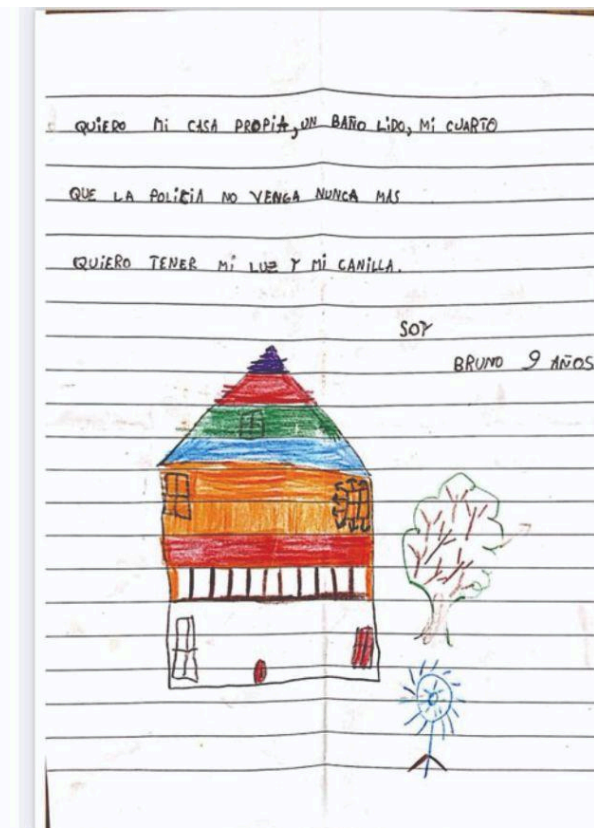 QUIERO MI CASA PROPIA, UN BAÑO LIDO, MI CUARTO
QUE LA POLICIA NO VENGA NUNCA MAS
QUIERO TENER MI LUZ Y MI CANILLA.
SOY
BRUNO 9 AÑOS